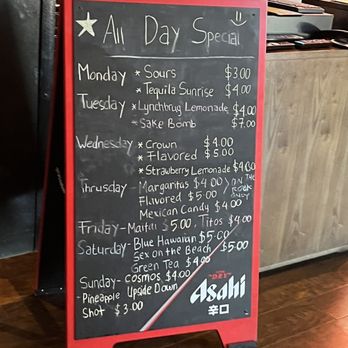 All Day Special
Monday * Sours $3.00
* Tequila Sunrise $4.00
Tuesday * Lynchburg Lemonade $4.00
* Sake Bomb $7.00
Wednesday * Crown $4.00
* Flavored $5.00
* Strawberry Lemonade $4.00
Thursday - Margaritas $4.00 > ON THE
Flavored $5.00 ROCK ONLY
Mexican Candy $4.00
Friday - Maitai $5.00, Titos $4.00
Saturday - Blue Hawaiian $5.00
Sex on the Beach $5.00
Green Tea $4.00
Sunday - Cosmos $4.00
- Pineapple Upside Down
Shot $3.00
Asahi
辛口